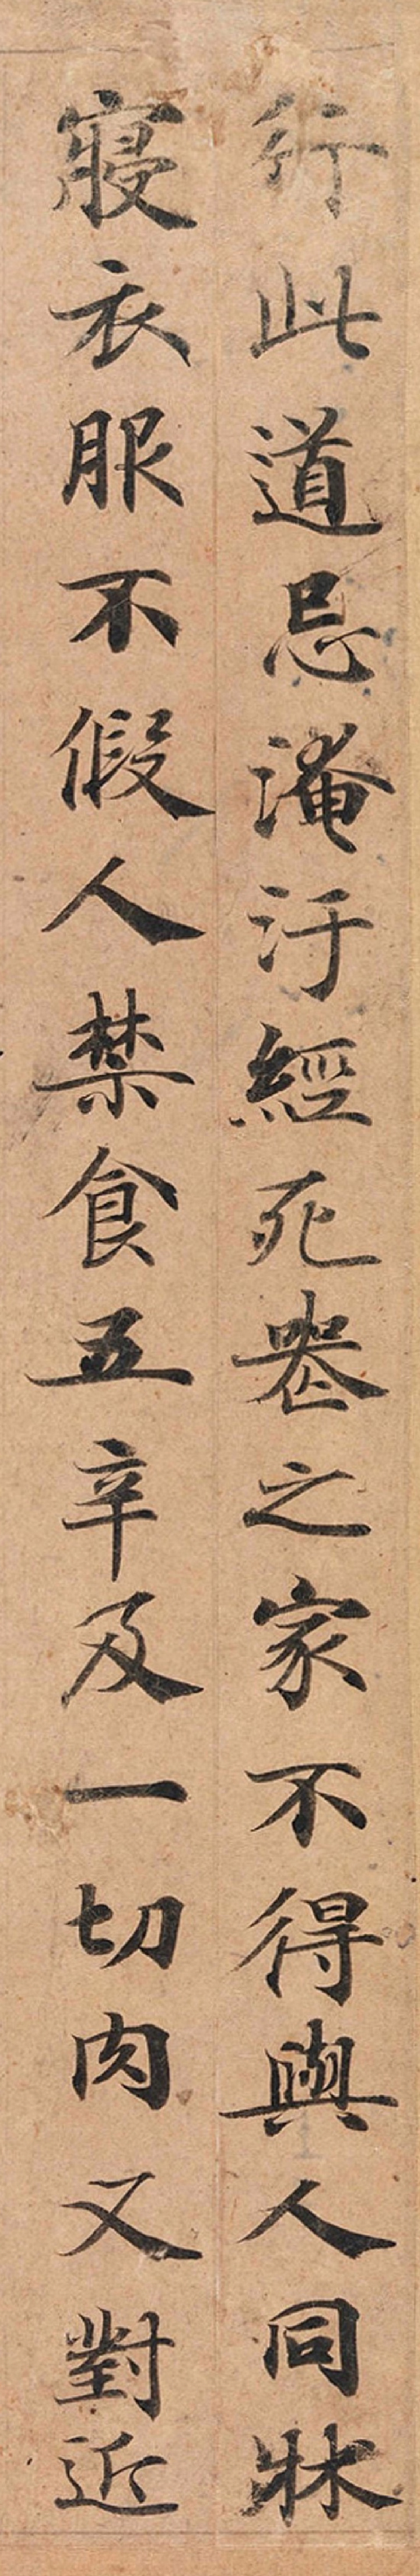 行此道忌淹汙經死喪之家不得與人同牀
寢衣服不假人禁食五辛及一切肉又對近